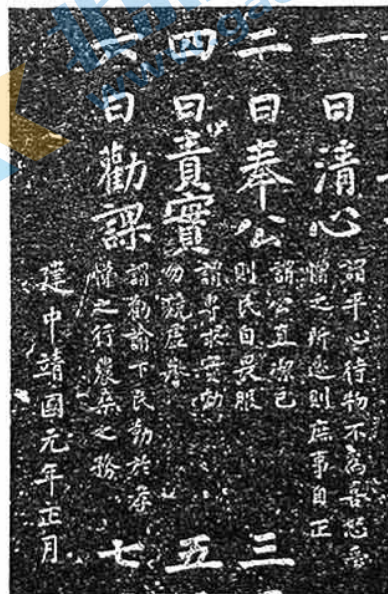 一曰清心
謂平心待物不為喜怒愛
憎之所遷則庶事自正
二曰奉公
謂公直潔己
則民自畏服
三
四曰責實
謂專求實効
勿競虛譽
五
六曰勸課
謂勸諭下民勤於孝
悌之行農桑之務
七
建中靖國元年正月